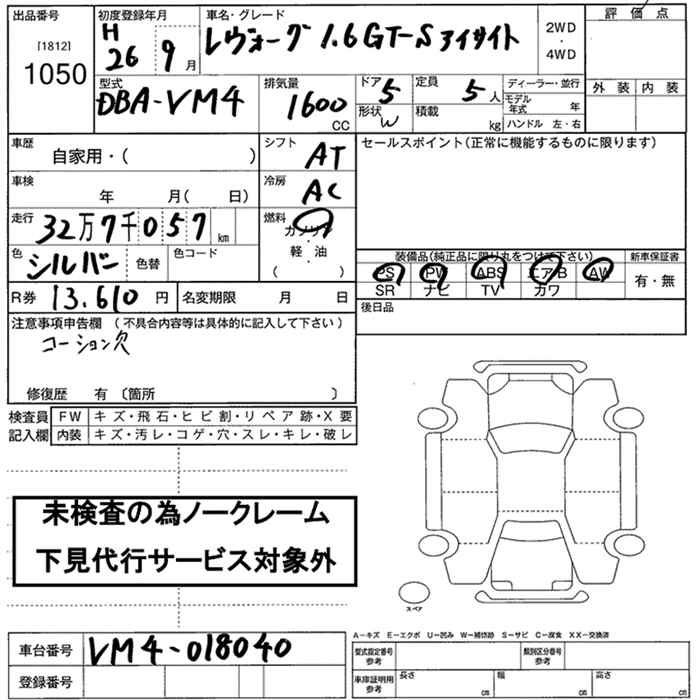 出品番号 初度登録年月 車名・グレード 評価点
[1812] H レヴォーグ 1.6GT-Sアイサイト 2WD
1050 26 9月 ・ 4WD
外装 内装
型式 排気量 ドア 5 定員 5人 ディーラー・並行
DBA-VM4 1600 CC 形状 W 積載 kg モデル年式 年
ハンドル 左・右
車歴 自家用・( ) シフト AT セールスポイント(正常に機能するものに限ります)
車検 年 月( 日) 冷房 AC
走行 32万7千057 km 燃料 ガソリン
色 シルバー 色替 色コード ・軽・油 ( )
装備品(純品正に限り丸をつけて下さい) 新車保証書
PS PW ABS エアB AW 有・無
SR ナビ TV カワ
R券 13.610円 名変期限 月 日 後日品
注意事項申告欄 (不具合内容等は具体的に記入して下さい)
コーション欠
修復歴 有 〔箇所 〕
検査員 FW キズ・飛石・ヒビ割・リペア跡・X要
記入欄 内装 キズ・汚レ・コゲ・穴・スレ・キレ・破レ
未検査の為ノークレーム
下見代行サービス対象外
スペア
A-キズ E-エクボ U-凹み W-補修跡 S-サビ C-腐食 XX-交換済
車台番号 VM4-018040 型式指定番号 参考 類別区分番号 参考
登録番号 車庫証明用 参考 長さ cm 幅 cm 高さ cm